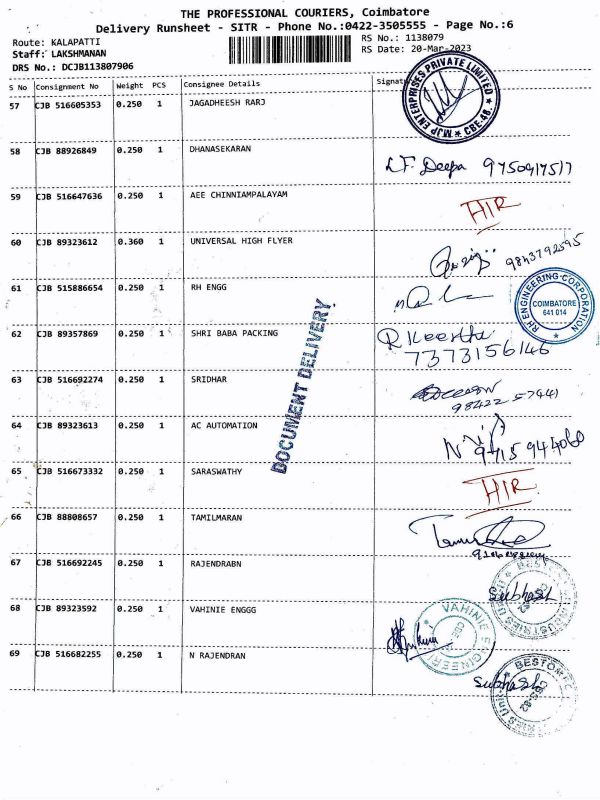 THE PROFESSIONAL COURIERS, Coimbatore
Delivery Runsheet - SITR - Phone No.:0422-3505555 - Page No.:6
Route: KALAPATTI
RS No.: 1138079
Staff: LAKSHMANAN
RS Date: 20-Mar-2023
DRS No.: DCJB113807906
S No Consignment No Weight PCS Consignee Details Signat
57 CJB 516605353 0.250 1 JAGADHEESH RARJ
ENTERPRISES PRIVATE LIMITED ★ CBE-48. ★ MJP
58 CJB 88926849 0.250 1 DHANASEKARAN
Deepa 9750917517
59 CJB 516647636 0.250 1 AEE CHINNIAMPALAYAM
HIR
60 CJB 89323612 0.360 1 UNIVERSAL HIGH FLYER
9843792595
61 CJB 515886654 0.250 1 RH ENGG
RH ENGINEERING CORPORATION
COIMBATORE
641 014
62 CJB 89357869 0.250 1 SHRI BABA PACKING
R Keertha
7373156146
DOCUMENT DELIVERY
63 CJB 516692274 0.250 1 SRIDHAR
98422 57441
64 CJB 89323613 0.250 1 AC AUTOMATION
9715944060
65 CJB 516673332 0.250 1 SARASWATHY
HIR
66 CJB 88808657 0.250 1 TAMILMARAN
67 CJB 516692245 0.250 1 RAJENDRABN
Subhash
68 CJB 89323592 0.250 1 VAHINIE ENGGG
VAHINIE ENGINEERI
69 CJB 516682255 0.250 1 N RAJENDRAN
Subhash
BESTOMEC